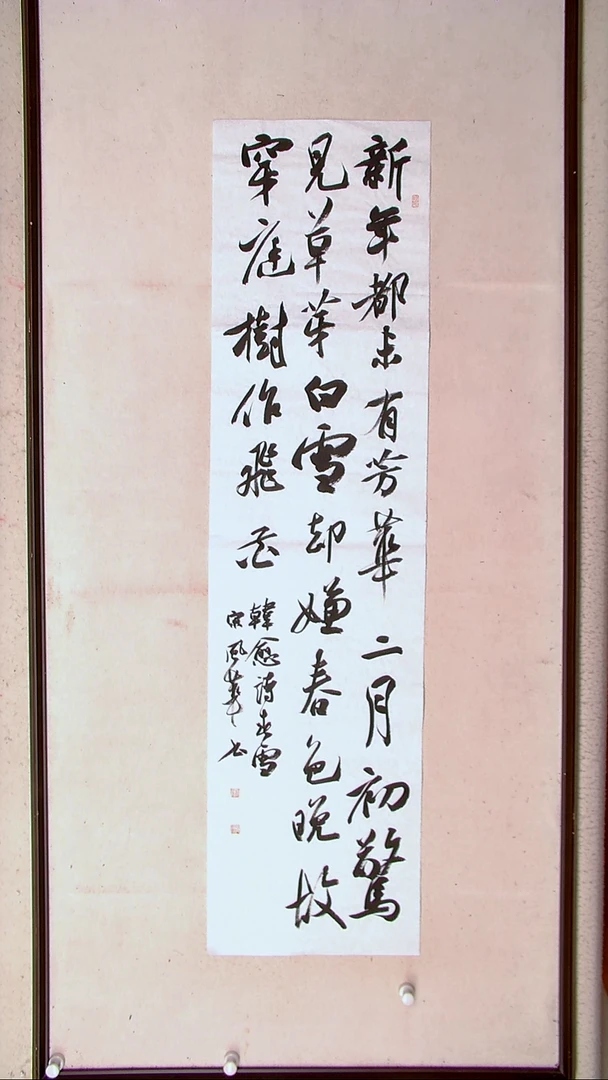 新年都未有芳華二月初驚
見草芽白雪却嫌春色晚故
穿庭樹作飛花
韓愈詩春雪
宋風華書